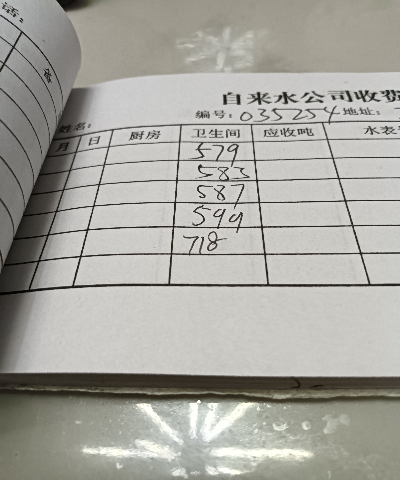 话:
自来水公司收费
编号: 035254 地址:
姓名:
月 日 厨房 卫生间 应收吨 水表
579
583
587
599
718